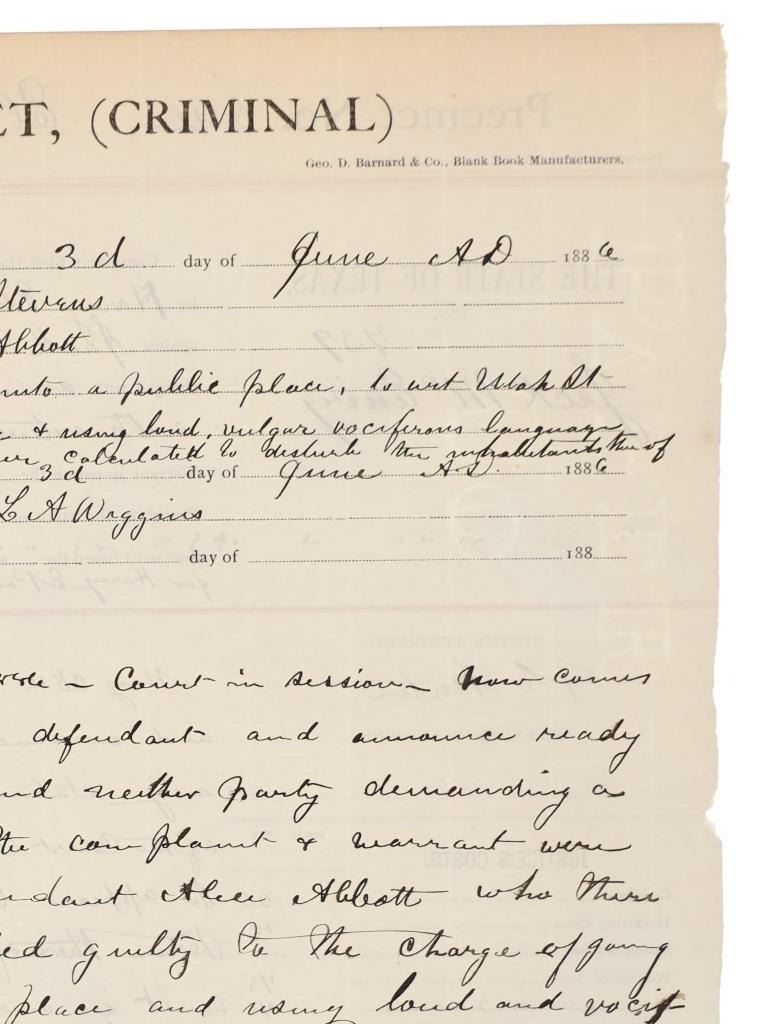 ET, (CRIMINAL)
Geo. D. Barnard & Co., Blank Book Manufacturers,
3d day of June AD 1886
Stevens
Abbott
into a public place, to wit Utah St
& using loud, vulgar vociferous language
calculated to disturb the inhabitants thereof
3d day of June AD. 1886
L A Wiggins
day of 188
Court in session – Now comes
defendant and announce ready
and neither party demanding a
the complaint & warrant were
ndant Alice Abbott who there
ed guilty to the charge of going
place and using loud and vocif-